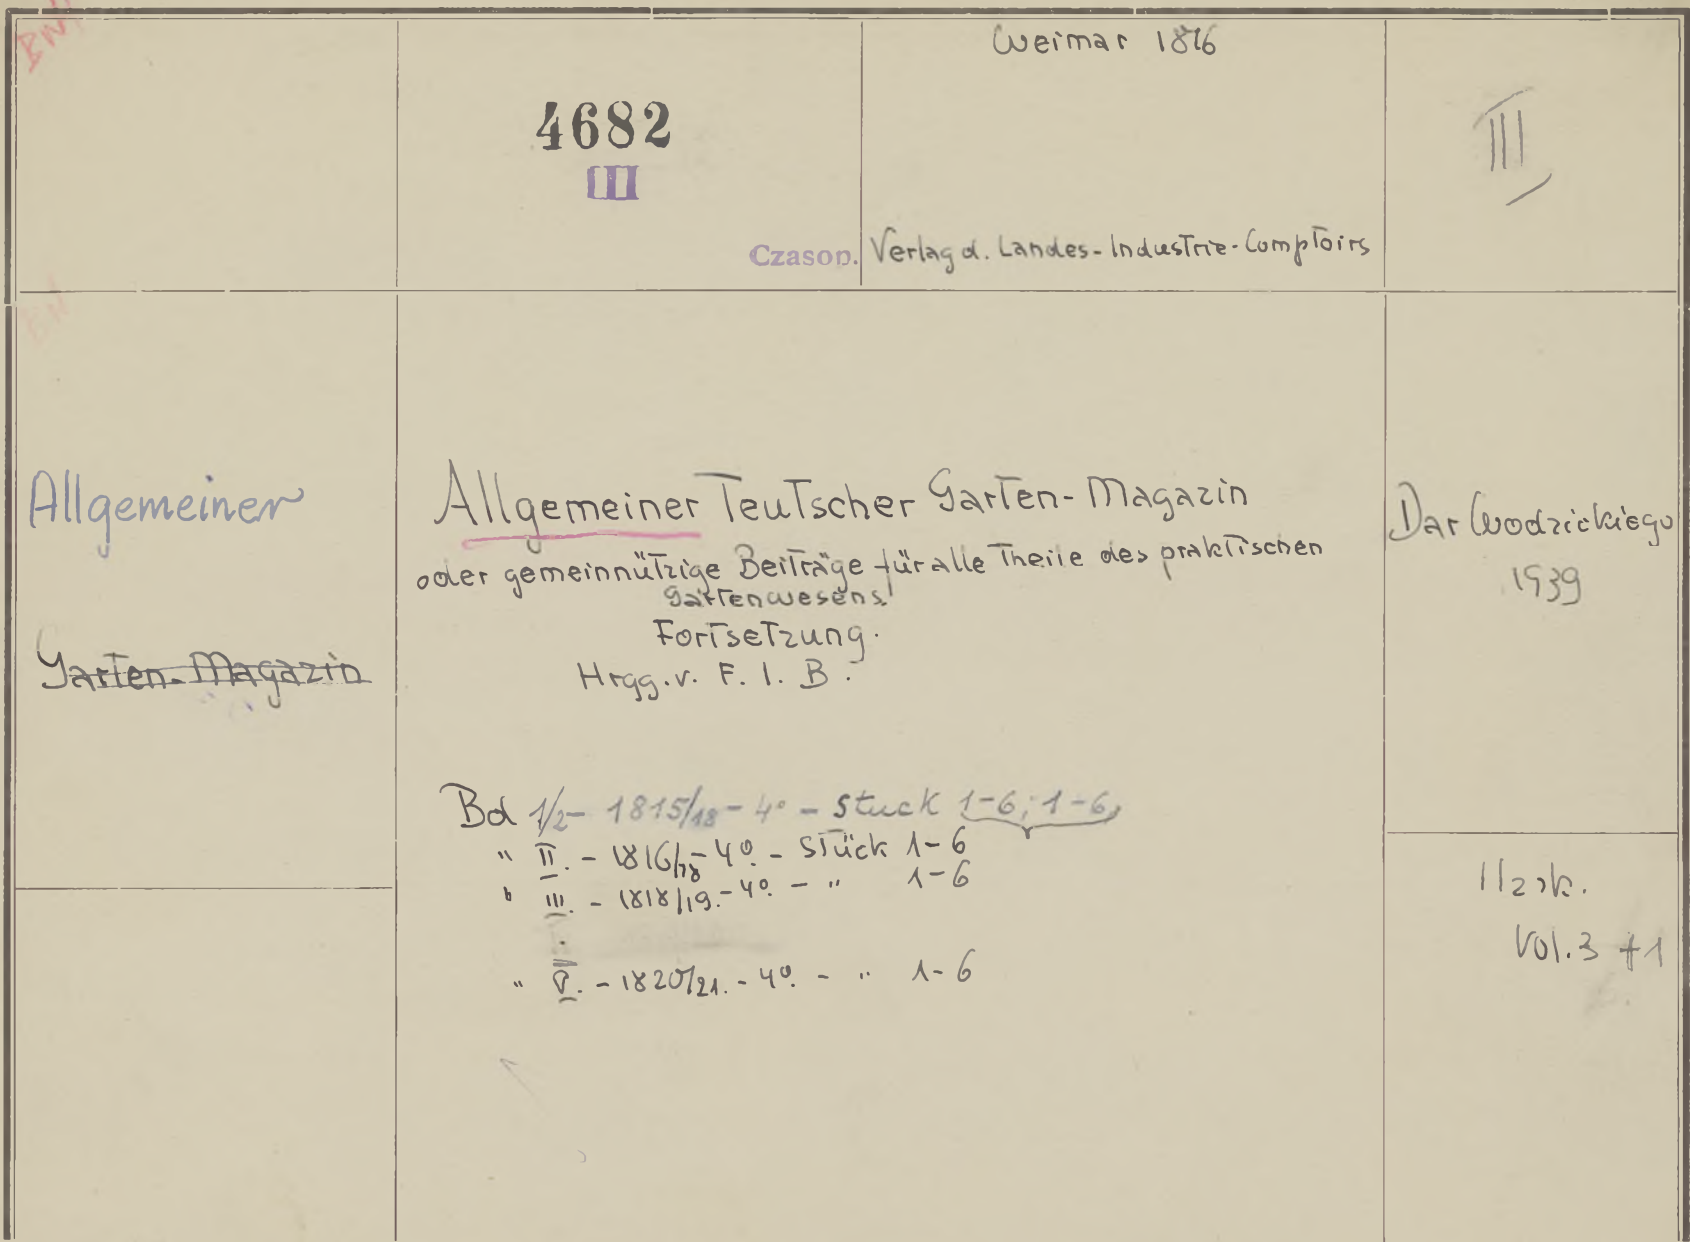 BN
Weimar 1816
4682
III
III
Czasop.
Verlag d. Landes-Industrie-Comptoirs
BN
Allgemeiner
Garten-Magazin
Allgemeiner Teutscher Garten-Magazin
oder gemeinnützige Beiträge für alle Theile des praktischen
Gartenwesens
Fortsetzung.
Hrgg. v. F. I. B.
Bd 1/2 - 1815/18 - 4° - Stuck 1-6; 1-6,
" II. - 1816/18 - 4° - Stück 1-6
" III. - 1818/19. - 4° - " 1-6
" V. - 1820/21. - 4° - " 1-6
Dar Wodzickiego
1939
Vol. 3 +1